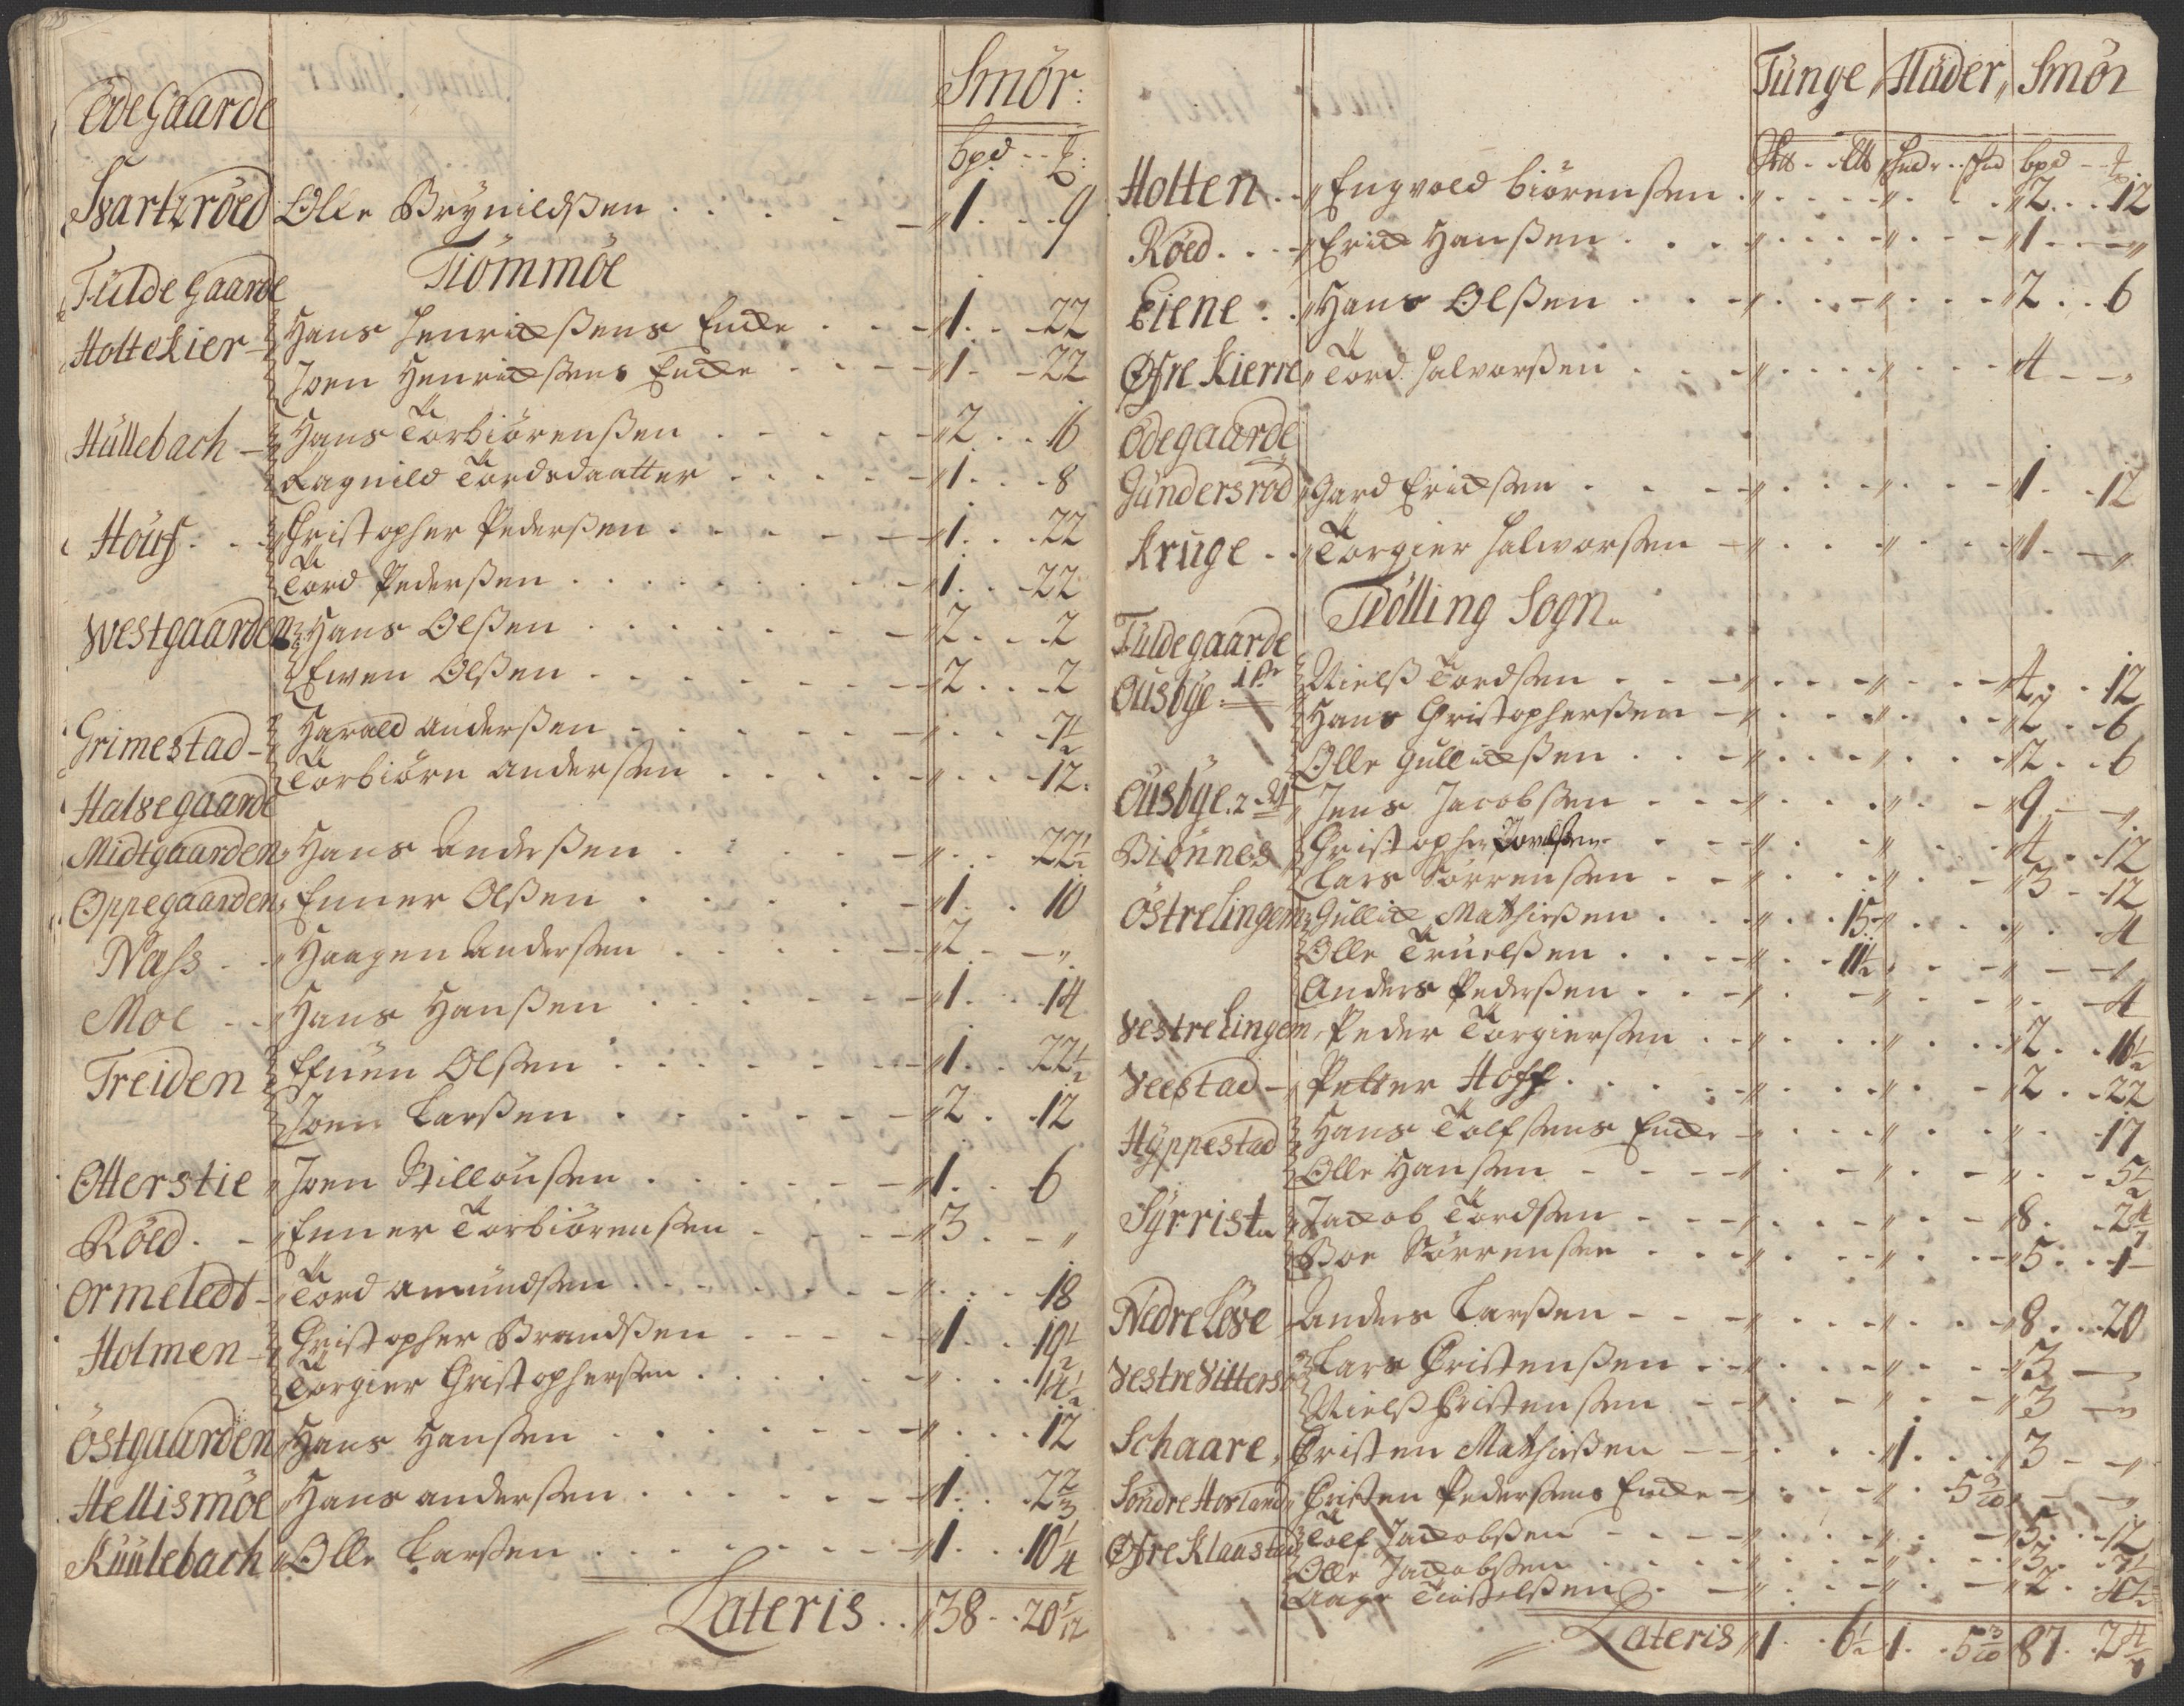 Smör:
Ödegaarde
bpd: - - ℔:
Svartzröed Olle Brynildßen . . . . . - „1 . . . 9
Tiömmöe
Fulde Gaarde
Holtekier - Hans Henrichßens Encke . . . - „1 . . - 22
Joen Henrichßens Encke . . . - „1 - - 22
Hüllebach - Hans Torbiörenßen . . . . - „2 . . 16
Ragnild Tordsdaatter . . . . - „1 . . . 8
Höuf . . Christopher Pederßen . . . . - „1 . . . 22
Tord Pederßen . . . . . . - „1 . . - 22
Westgaarden Hans Olßen . . . . . . - „2 . . . 2
Ewen Olßen . . . . . . - „2 . . . 2
Grimestad - Harald Anderßen . . . . . - „ . . . 7½
Torbiörn Anderßen . . . . . - „ . . - 12.
Halsegaarde
Midtgaarden, Hans Anderßen . . . . . - „ . . . 22½
Oppegaarden, Enner Olßen . . . . . - „1 . . 10
Næss . . „ Haagen Anderßen . . . . . - „2 . - „
Moe . . „ Hans Hanßen . . . . . - „1 . . . 14
Treiden Efuen Olßen . . . . . - „1 . . 22½
Joen Larßen . . . . . . - „2 . . . 12
Otterstie „ Joen Stillöußen . . . . . - „1 . . 6
Röed . - „ Enner Torbiörenßen . . . - „3 . - „
Ormeledt - „ Tord Amundßen . . . . . - „ . . . 18
Holmen - Christopher Brandßen - - - - „1 . . 19½
Torgier Christopherßen . . . . . „ . . . 14½
Östgaarden „ Hans Hanßen . . . . . . - „ . . . 12
Hellismöe „ Hans Anderßen . . . . . - „1 . . . 2⅔
Kuulebach „ Olle Larßen . . . . . . - „1 . . . 10¼
Lateris . . „38 - . 20 5/12
Tünge „ Hüder „ Smör
bpd - - ℔
Holten . . „ Engvold Biörenßen . „ . . . . „ . . . „2 . . . 12
Röed . . - „ Erick Hanßen . . . „ . . . . „ . - - „1 - - - „
Eiene . . „ Hans Olßen . . . - „ . . - „ . . . „2 . . 6
Øfre Kierre „ Tord Halvorßen . . . „ . . . . „ . . . „4 - - „
Ödegaarde
Gündersröd „ Gard Erickßen . . . - „ . . . „ . . - „1 . . . 12
Kruge . . „ Torgier Halworßen - „ . . . „ . . . „1 - - „
Tiölling Sogn.
Fuldegaarde
Ousbÿe. 1 Nielß Tordßen . . . - „ . . . „ . . - „4 . . . 12
Hans Christopherßen - „ . . . „ . . . „2 . . 6
Olle Gullickßen . . . „ . . . „ . . . „2 . . 6
Ousbÿe. 2 „ Jens Jacobßen - - - „ . . . „ . . - „9 - - „
Biönnes Christopher . . . - „ . . . „ . . . „4 . . . 12
Lars Sörrenßen . . - „ . . . „ . . - „3 . - 12
Östre Lingem Gullick Mathisßen . . . „ . . 15 „ . . . „ . . . 4
Olle Truelßen . . . „ . . 11½ „ . . - „ - - 1
Anders Pederßen . . - „ . - „ . . . „ . - 4
Vestre Lingem, Peder Torgierßen . . - „ . . . „ . . . „2 . . 16½
Veestad - „ Petter Hoff . . . . . „ . . . „ . . - „2 . . 22
Hÿppestad Hans Tolfßens Encke - „ . . . „ . . „ . . . 17
Olle Hanßen - - - - „ . . - „ . - „ . . 5½
Sÿrrist Jacob Tordßen - - - „ . . . „ . . - „8 . . . 2 4/7
Boe Sörrenßen . . . „ . . . „ . . - „5 . . . 1
Nedre Löve Anders Larßen - - - „ . . . „ . . - „8 . . 20
Vestre Vitters Lars Christenßen . . - „ . . . „ . . - „3 -
Nielß Christenßen - - - „ . . - „ . . - „3 - „
Schaare „ Christen Mathisßen - - „ . . . „1 . . . „3 - - „
Söndre Horland „ Christen Pederßens Encke - „ . . . „ . 5 „ - - „
Øfre Klaustad Tolf Jackobßen - - - „ . . . „ . - „5 . . . 12
Olle Jackobßen . . . . „ . . . „ . . . „3 . . 7½
Aage . . - „ . . . „ . - „2 . . 4½
Lateris „1 . . 6½ . 1 . . 5 3/10 87 . . 2 4/7